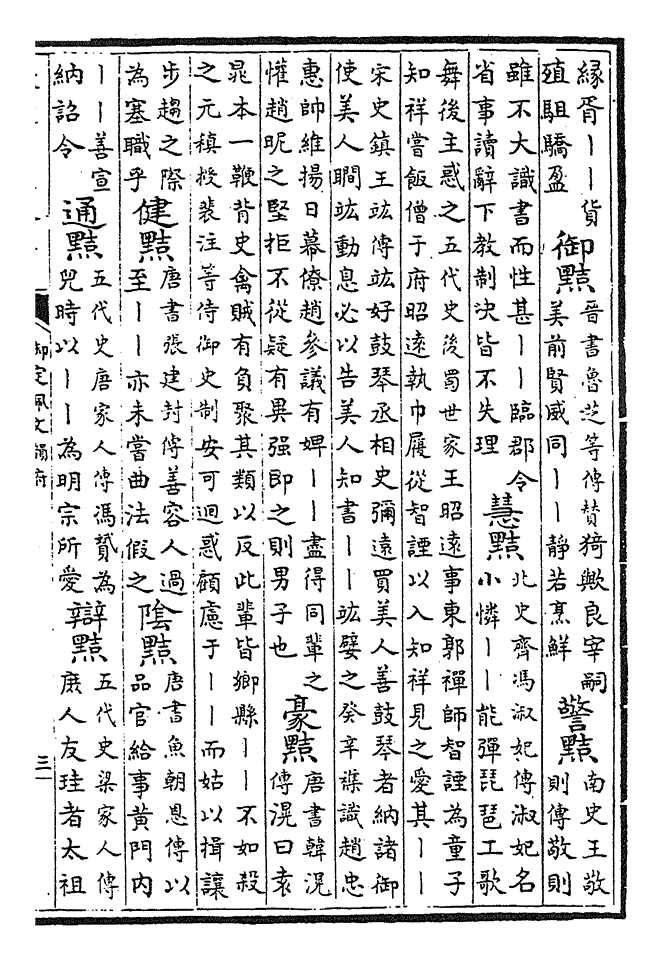 緣胥｜｜貨
殖駔驕盈
御黠
晉書魯芝等傳贊猗歟良宰嗣
美前賢威同｜｜靜若烹鮮
警黠
南史王敬
則傳敬則
雖不大識書而性甚｜｜臨郡令
省事讀辭下教制決皆不失理
慧黠
北史齊馮淑妃傳淑妃名
小憐｜｜能彈琵琶工歌
舞後主惑之五代史後蜀世家王昭遠事東郭禪師智諲為童子
知祥嘗飯僧于府昭遠執巾屨從智諲以入知祥見之愛其｜｜
宋史鎮王竑傳竑好鼓琴丞相史彌遠買美人善鼓琴者納諸御
使美人瞷竑動息必以告美人知書｜｜竑嬖之癸辛雜識趙忠
惠帥維揚日幕僚趙參議有婢｜｜盡得同輩之
懽趙昵之堅拒不從疑有異强即之則男子也
豪黠
唐書韓滉
傳滉曰袁
晁本一鞭背史禽賊有負聚其類以反此輩皆鄉縣｜｜不如殺
之元稹授裴注等侍御史制安可迴惑顧慮于｜｜而姑以揖讓
步趨之際
為塞職乎
健黠
唐書張建封傳善容人過
至｜｜亦未嘗曲法假之
陰黠
唐書魚朝恩傳以
品官給事黃門內
｜｜善宣
納詔令
通黠
五代史唐家人傳馮贇為
兒時以｜｜為明宗所愛
辯黠
五代史梁家人傳
庶人友珪者太祖
御定佩文韻府
三